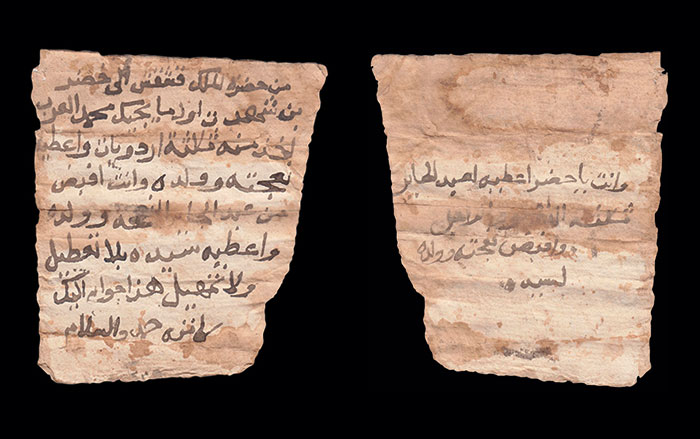 من حضرة الملك قشقش الى خضر
بن اوزما يجيك محمد العرب
منه ثلاثة اردويات واعطيه
نعجته وولده وانت اقبض
من عبد الجابر النعجه وولده
واعطيه سيده بلا تعطيل
ولا تمهيل هذا جوابه اليك
والسلام
وانت يا خضر اعطيه لعبد الجابر
واقبض نعجته وولده
لسيده